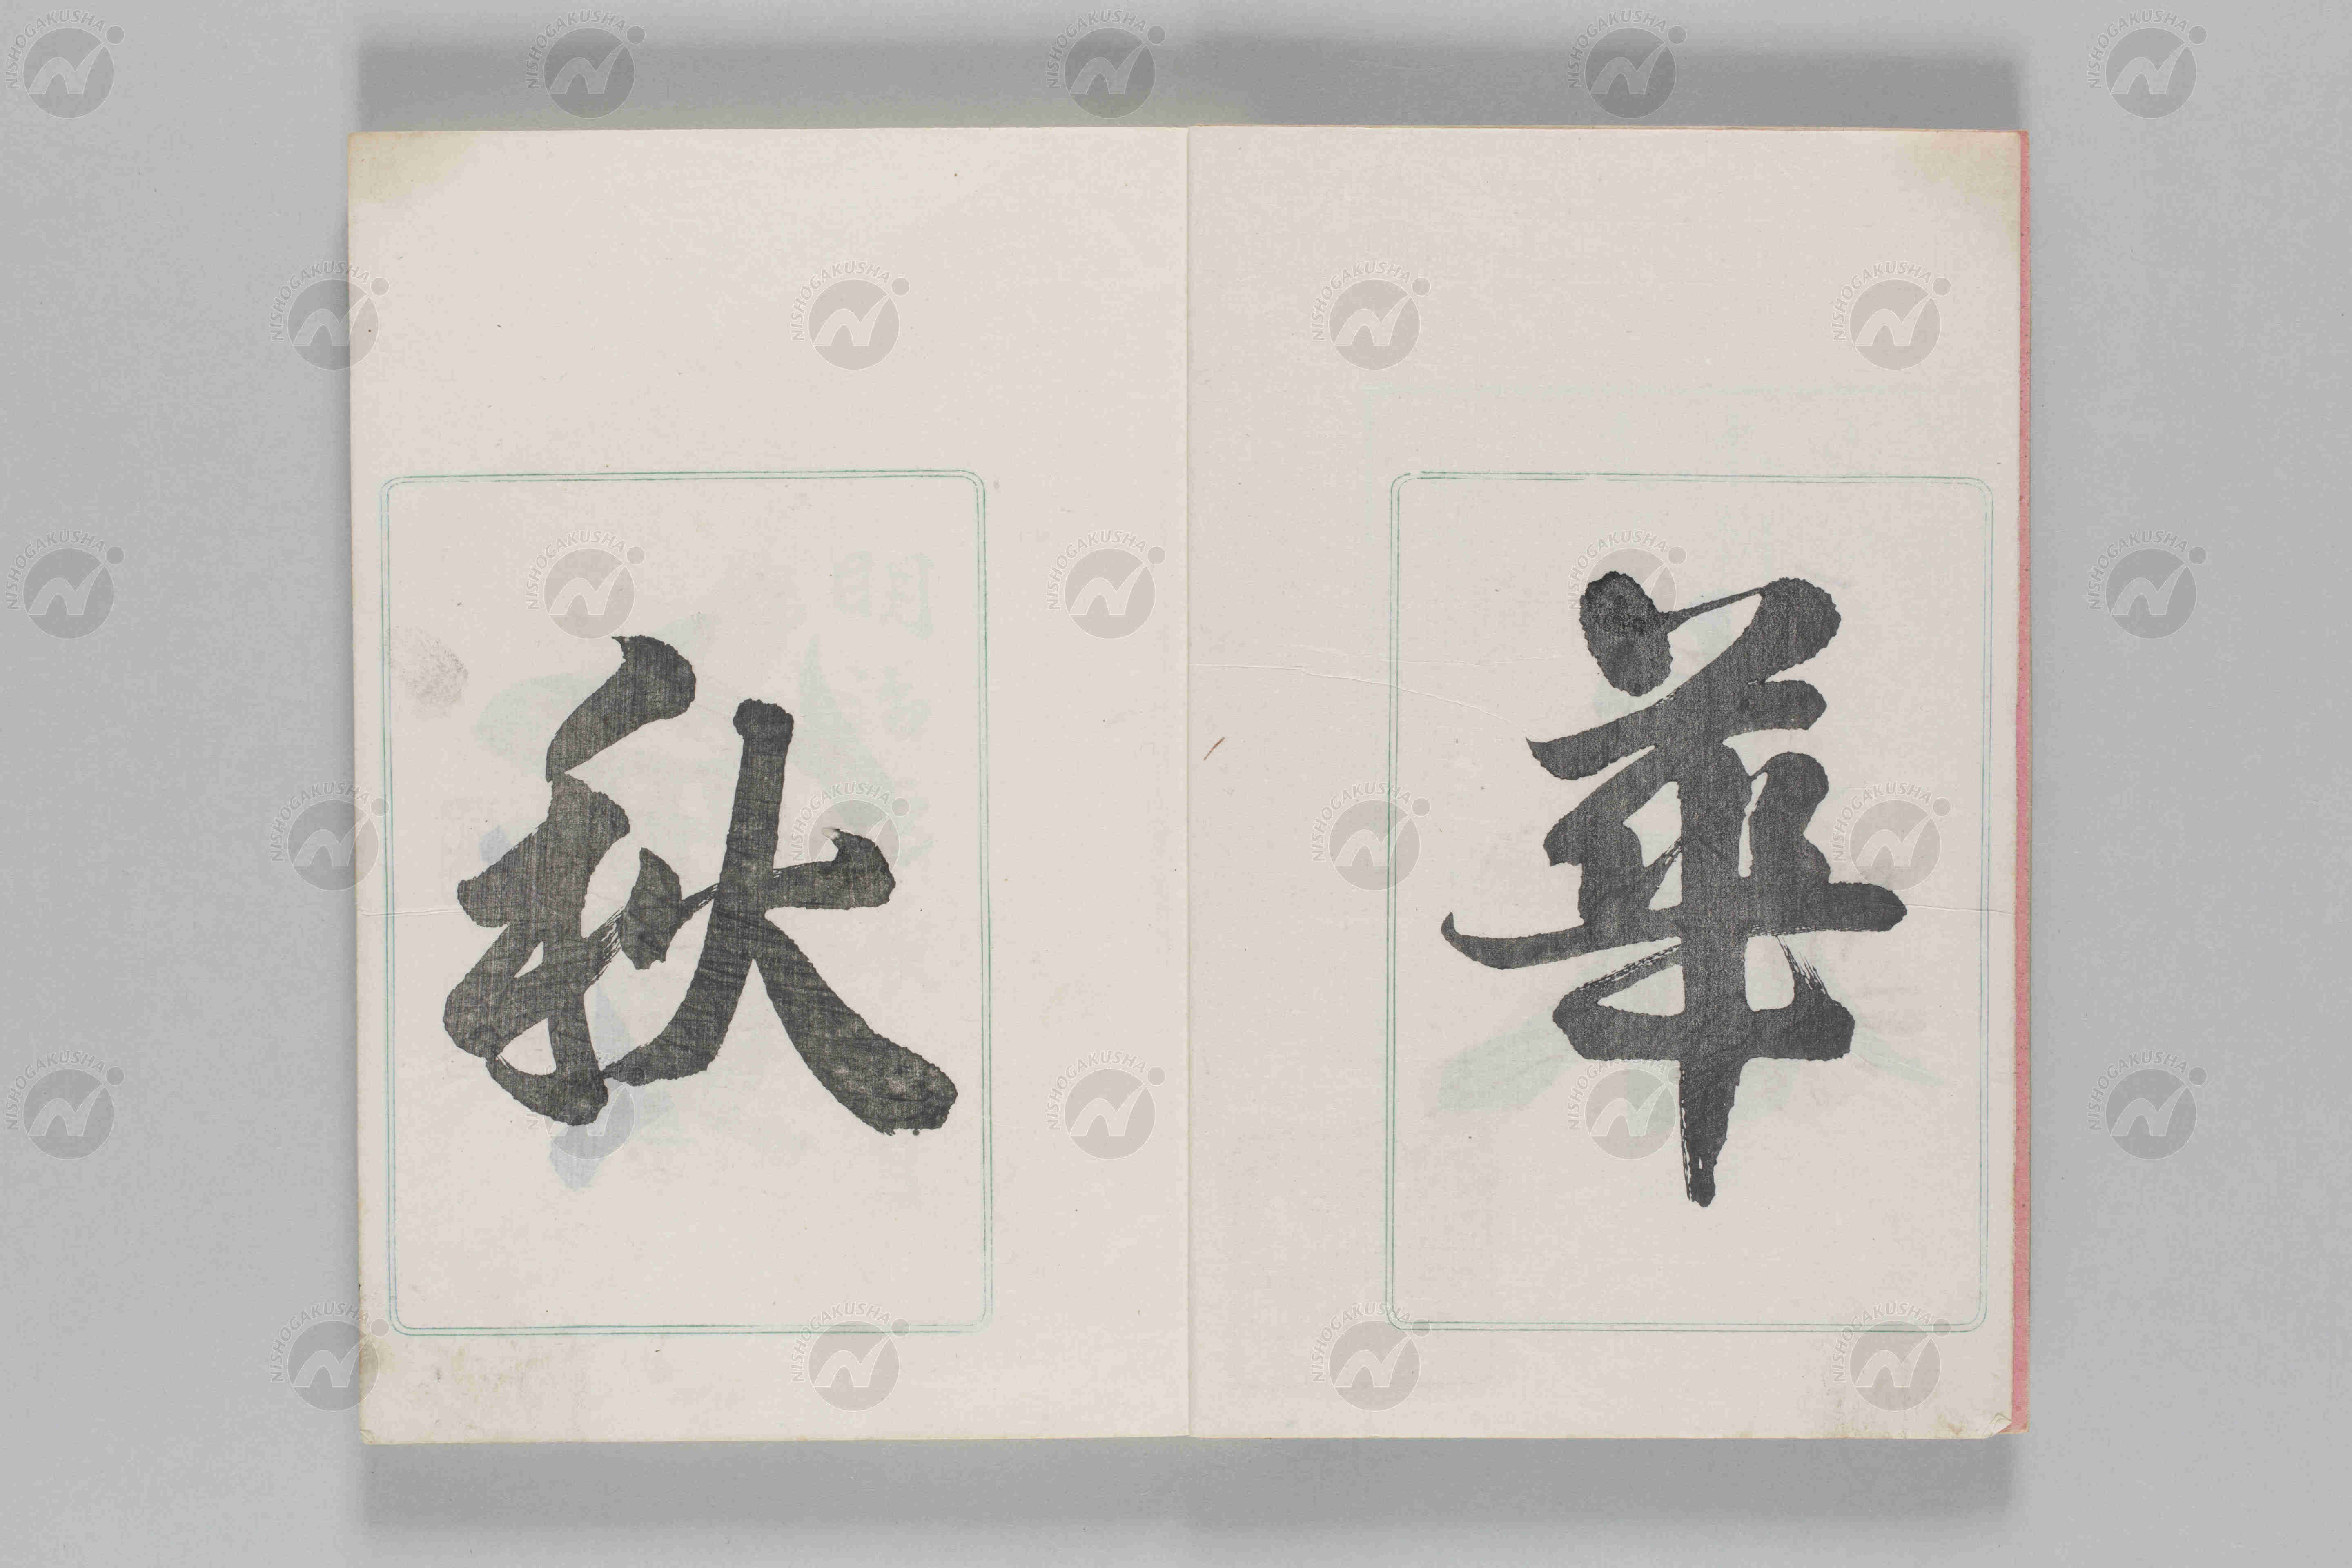 華
秋
NISHOGAKUSHA